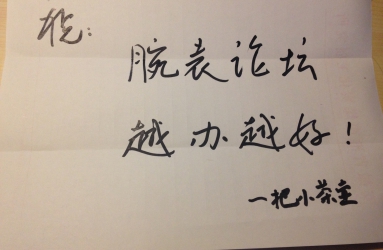 祝:
腕表论坛
越办越好!
一把小茶壶